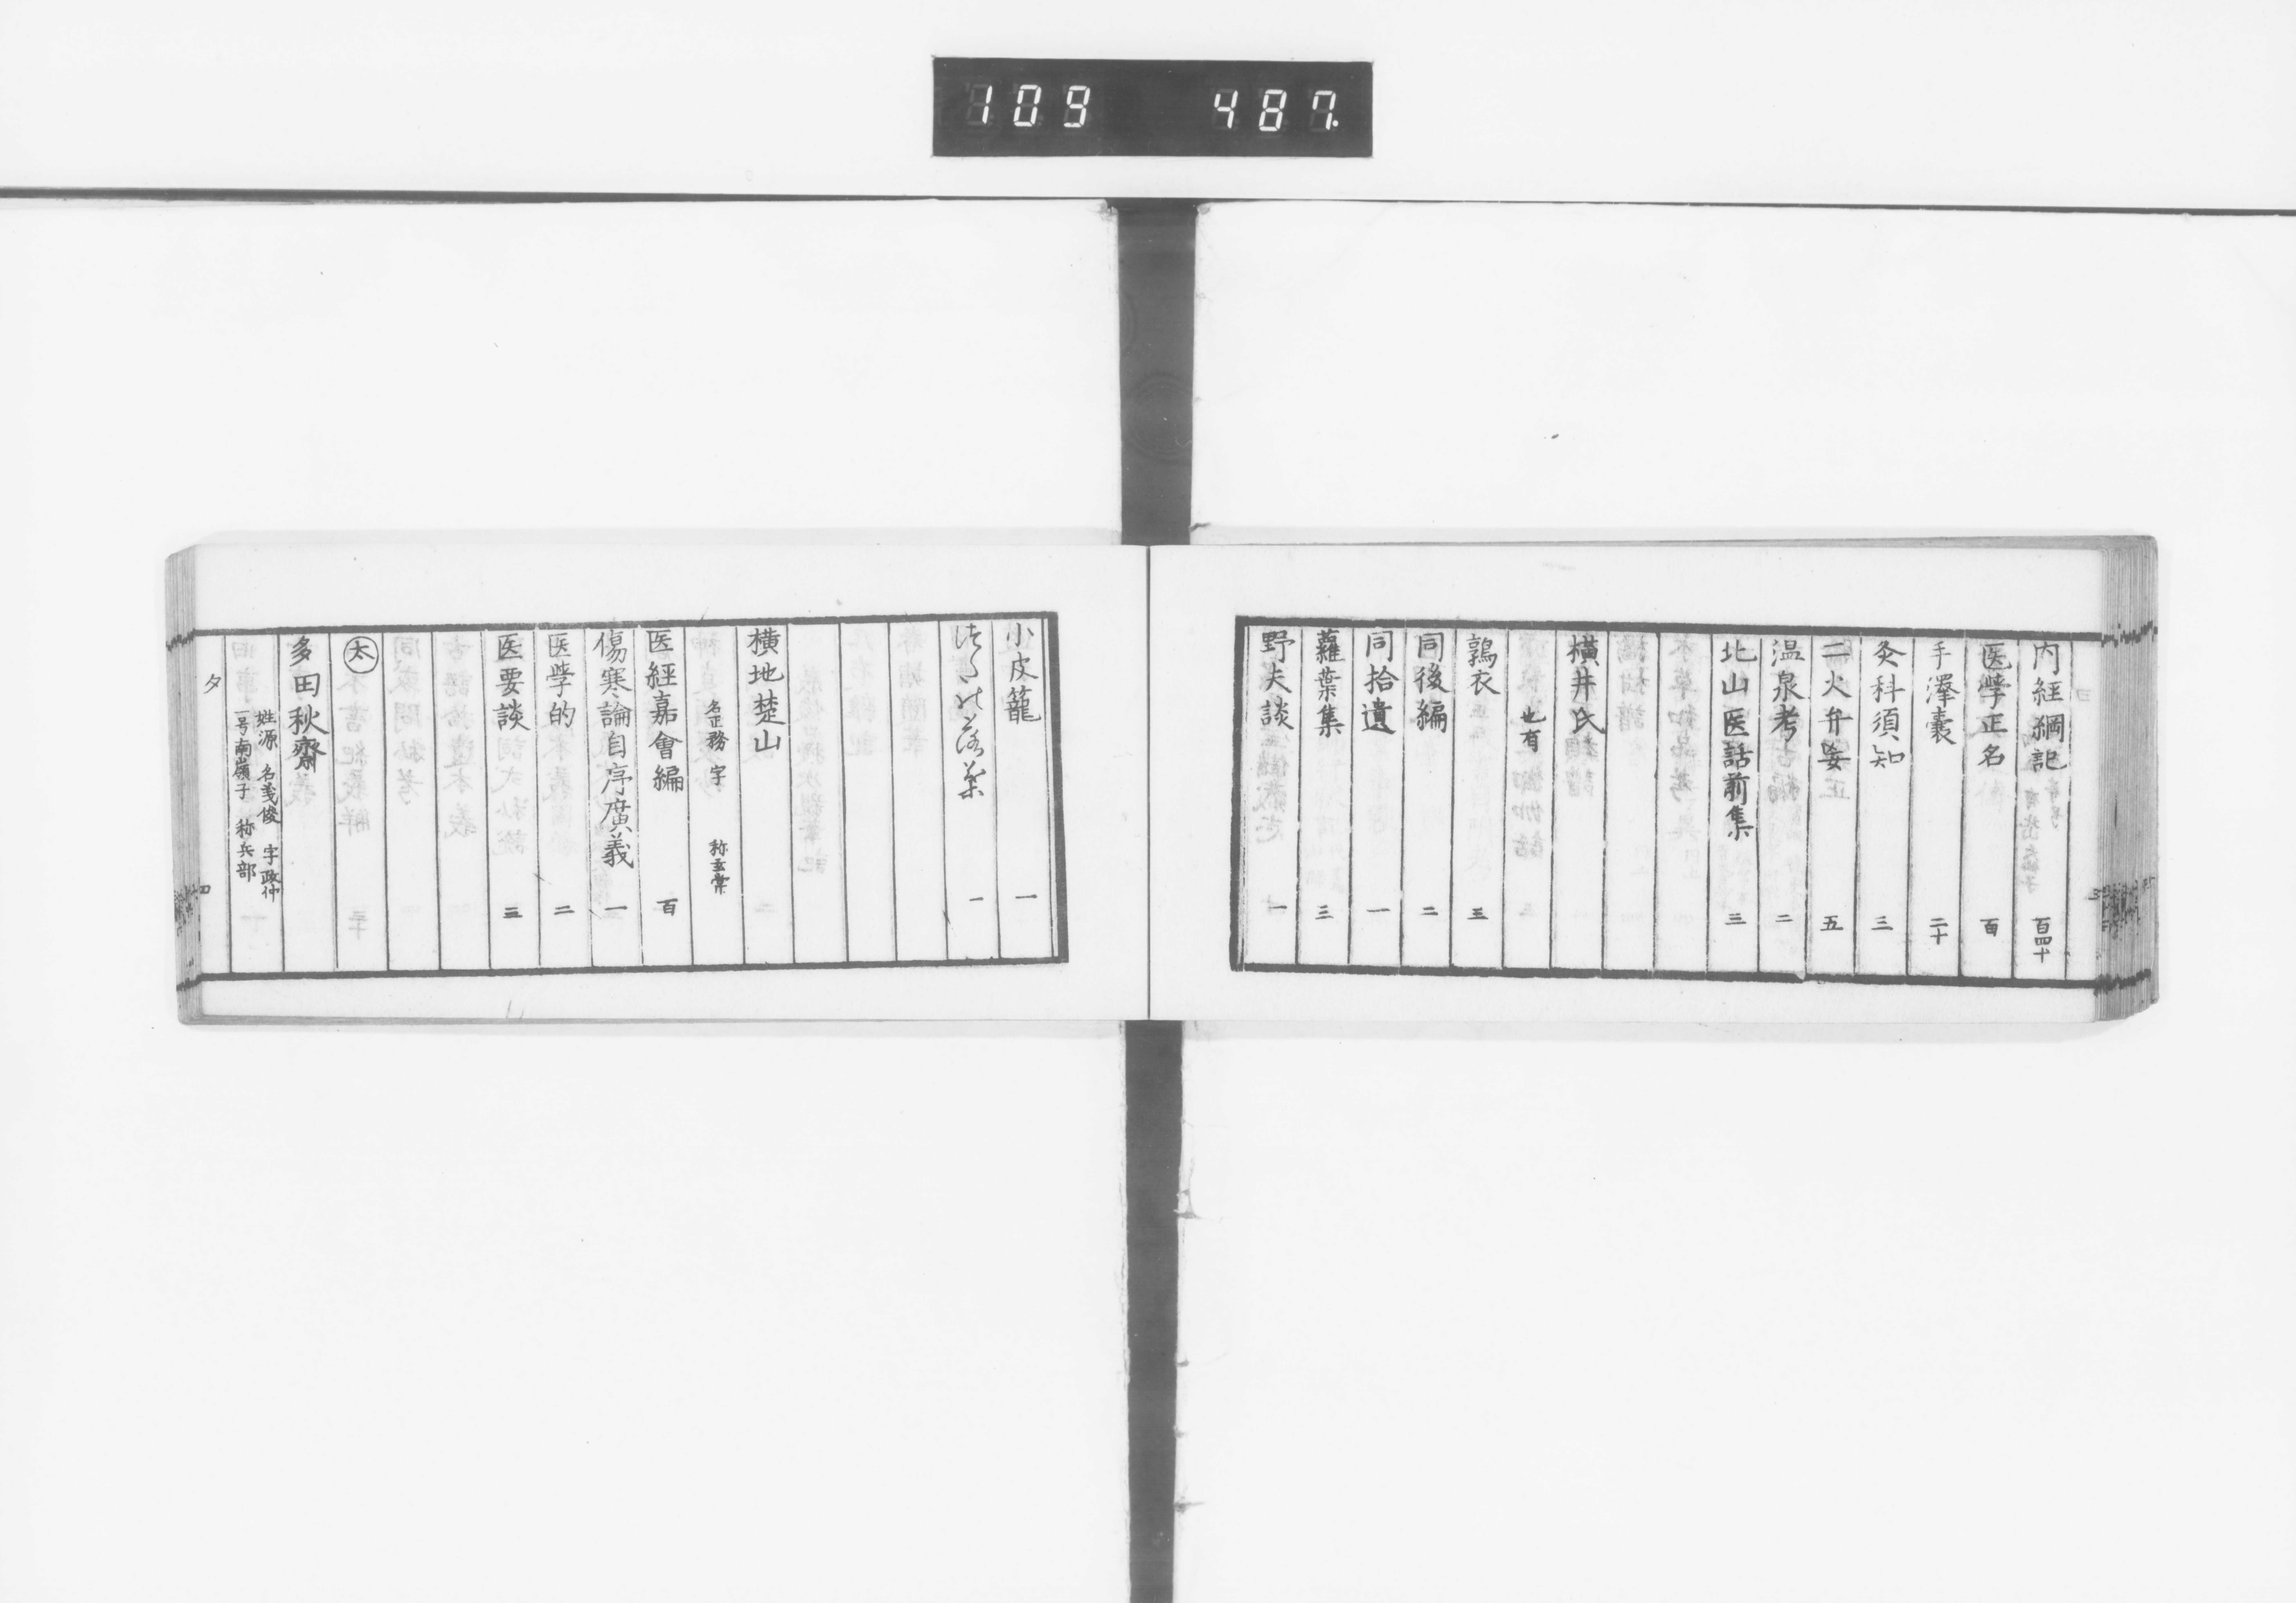 109 487.
内経綱記 百四十
医学正名 百
手澤嚢 二十
灸科須知 三
二火弁妄 五
温泉考 二
北山医話前集 三
横井氏
也有
鶉衣 三
同後編 二
同拾遺 一
蘿葉集 三
野夫談 一
小皮籠 一
横地楚山
名正務 字
医經嘉會編 百
傷寒論自序廣義 一
医学的 二
医要談 三
太
多田秋齋
姓源 名義俊 字政仲
一号南嶺子 称兵部
タ 四